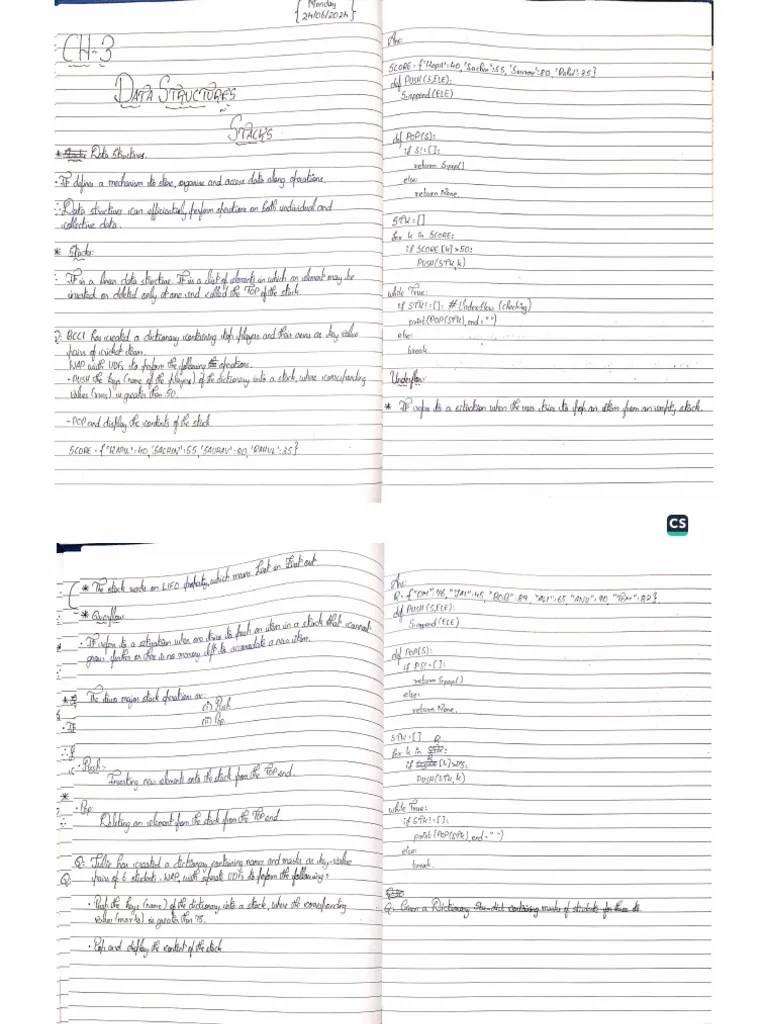 {Monday
24/06/2024
CH-3
DATA STRUCTURES
STACKS
* Data Structures
· It defines a mechanism to store, organise and access data along operations.
∴ Data structures can efficiently perform operations on both individual and
collective data.
* Stacks:
: It is a linear data structure. It is a list of elements in which an element may be
inserted or deleted only at one end called the TOP of the stack.
Q: BCCI has created a dictionary containing top players and their runs as key value
pairs of cricket team.
WAP with UDFs to perform the following operations.
- PUSH the keys (name of the players) of the dictionary into a stack, where corresponding
value (runs) is greater than 50.
- POP and display the contents of the stack.
SCORE = {"KAPIL":40, 'SACHIN':55, 'SAURAV':80, 'RAHUL':35}
Ans:
SCORE = {"Kapil":40, 'Sachin':55, 'Saurav':80, 'Rahul':35}
def PUSH(S,ELE):
S.append(ELE)
def POP(S):
if S!=[]:
return S.pop()
else:
return None.
STK=[]
for k in SCORE:
if SCORE[k]>50:
PUSH(STK,k)
while True:
if STK!=[]: # Underflow (checking)
print(POP(STK), end=" ")
else:
break
Underflow:
* It refers to a situation when the user tries to pop an item from an empty stack.
CS
* The stack works on LIFO property, which means Last in First out
* Overflow
· It refers to a situation when one tries to push an item in a stack that cannot
grow further or there is no memory left to accomodate a new item.
* The two major stack operations are:
(i) Push
(ii) Pop
· Push:-
Inserting new element onto the stack from the TOP end.
· Pop:
Deleting an element from the stack from the TOP end.
Q: Julie has created a dictionary containing names and marks as key-value
pairs of 6 students. WAP, with separate UDFs to perform the following:
· Push the keys (name) of the dictionary into a stack, where the corresponding
value (marks) is greater than 75.
· Pop and display the content of the stack
Ans:
R = {"OM":76, "JAI":45, "BOB":89, "ALI":65, "ANU":90, "TOM":82}
def PUSH(S,ELE):
S.append(ELE)
def POP(S):
if PS!=[]:
return S.pop()
else:
return None.
STK=[]
for k in R:
if [k]>75:
PUSH(STK,k)
while True:
if STK!=[]:
print(POP(STK), end=" ")
else:
break.
Q: Given a Dictionary Stu-dict containing marks of students for three